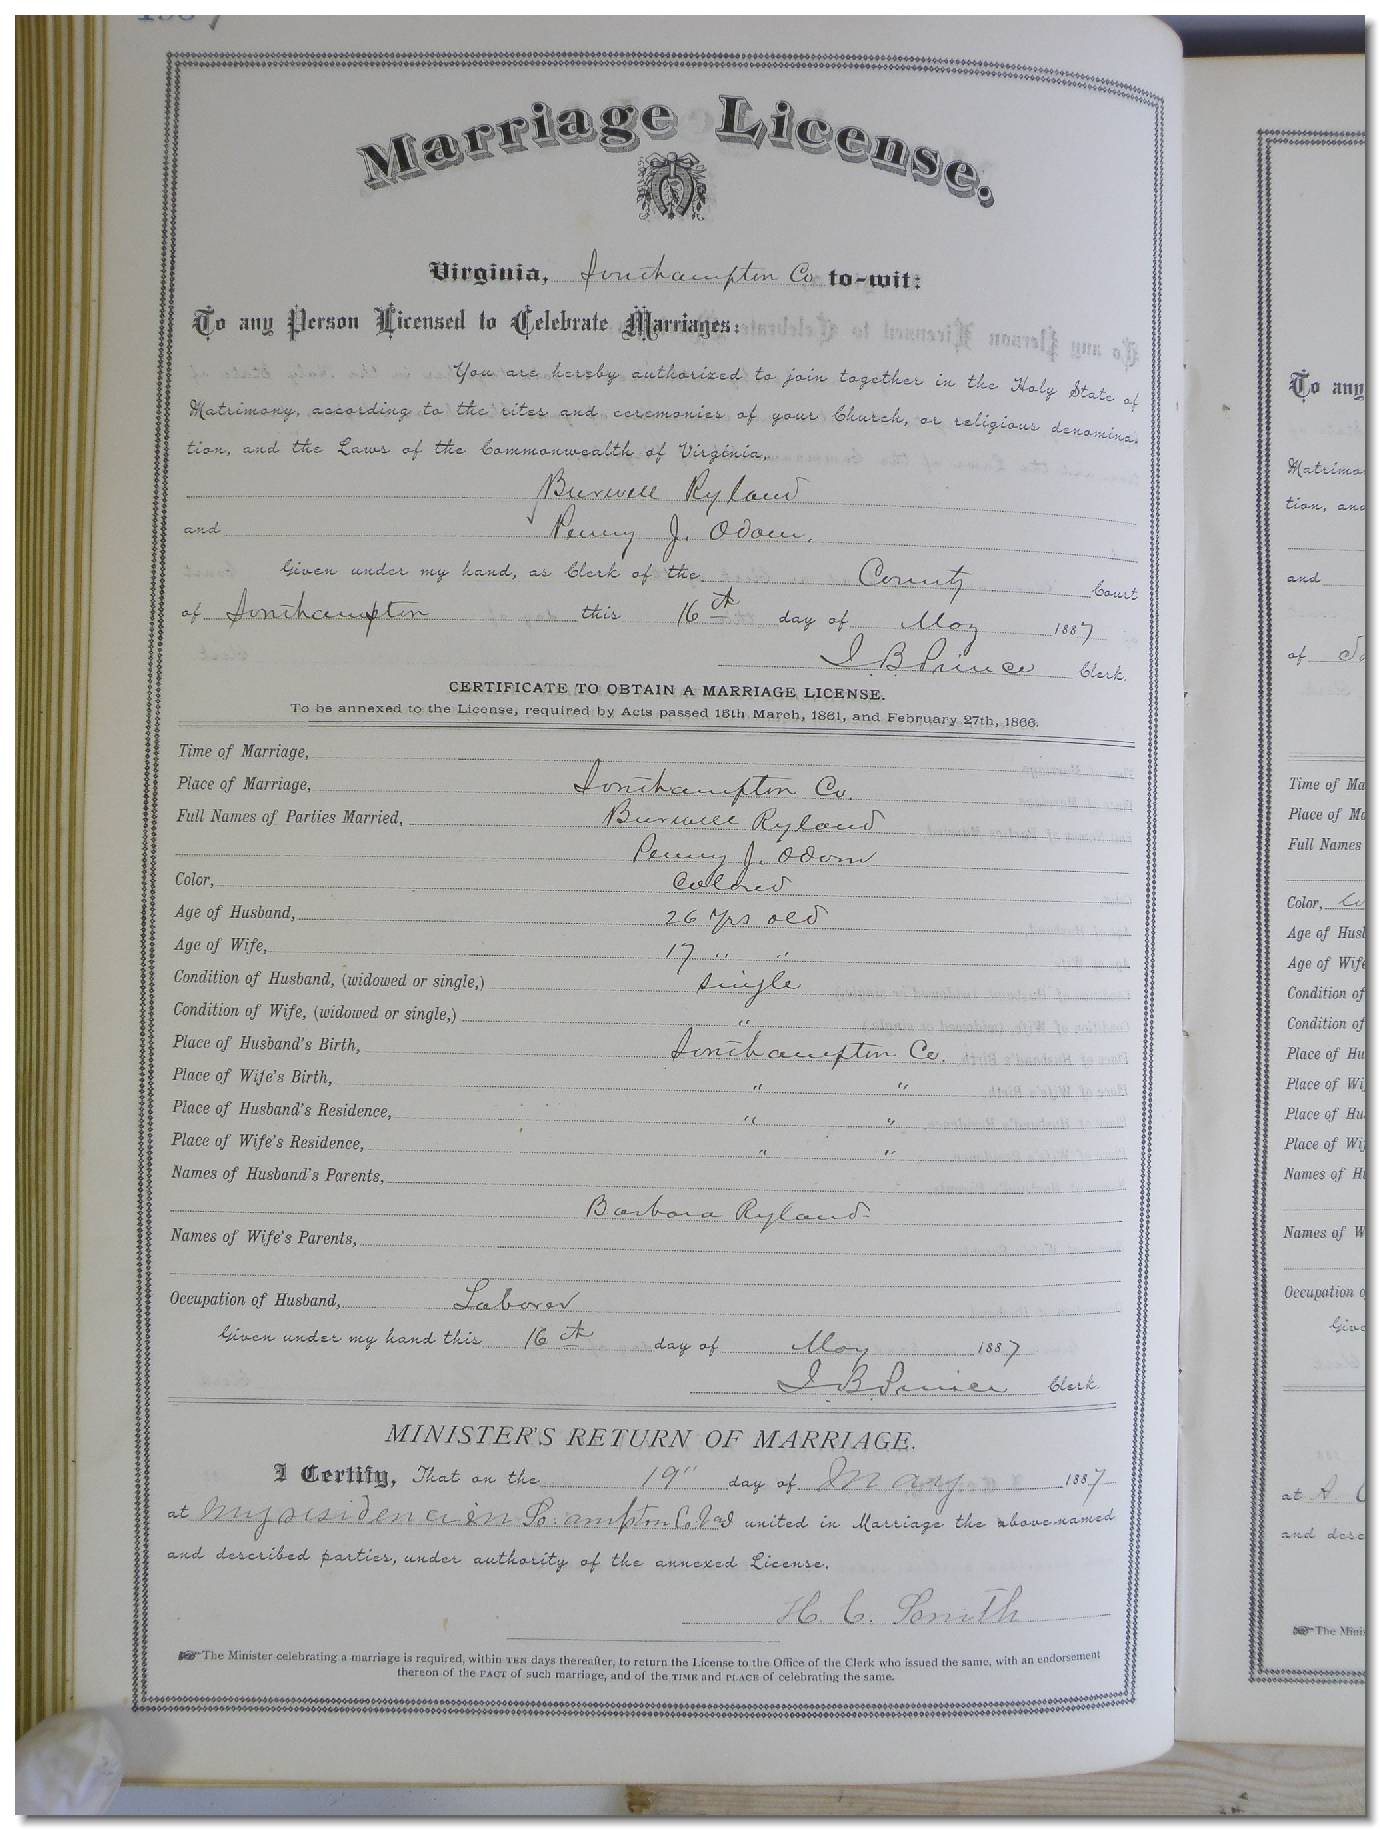 Marriage License.
Virginia, Southampton Co to-wit:
To any Person Licensed to Celebrate Marriages:
You are hereby authorized to join together in the Holy State of
Matrimony, according to the rites and ceremonies of your Church, or religious denomina-
tion, and the Laws of the Commonwealth of Virginia,
Burwell Ryland
and Penny J. Odom.
Given under my hand, as Clerk of the County Court
of Southampton this 16th day of May 1887
I. B. Prince Clerk.
CERTIFICATE TO OBTAIN A MARRIAGE LICENSE.
To be annexed to the License, required by Acts passed 15th March, 1861, and February 27th, 1866.
Time of Marriage,
Place of Marriage, Southampton Co.
Full Names of Parties Married, Burwell Ryland
Penny J. Odom
Color, Colored
Age of Husband, 26 yrs old
Age of Wife, 17 " "
Condition of Husband, (widowed or single,) single
Condition of Wife, (widowed or single,) "
Place of Husband's Birth, Southampton Co.
Place of Wife's Birth, " "
Place of Husband's Residence, " "
Place of Wife's Residence, " "
Names of Husband's Parents,
Barbara Ryland
Names of Wife's Parents,
Occupation of Husband, Laborer
Given under my hand this 16th day of May 1887
I. B. Prince Clerk.
MINISTER'S RETURN OF MARRIAGE.
I Certify, That on the 19" day of May 1887
at my residence in So.ampton Co. Va I united in Marriage the above-named
and described parties, under authority of the annexed License.
H. C. Smith
The Minister celebrating a marriage is required, within TEN days thereafter, to return the License to the Office of the Clerk who issued the same, with an endorsement
thereon of the FACT of such marriage, and of the TIME and PLACE of celebrating the same.
To any
Matrimo
tion, and
and
of
Time of Ma
Place of Ma
Full Names
Color,
Age of Husb
Age of Wife
Condition of
Condition of
Place of Hu
Place of Wi
Place of Hu
Place of Wi
Names of H
Names of W
Occupation o
Give
at A
and desc
The Minis